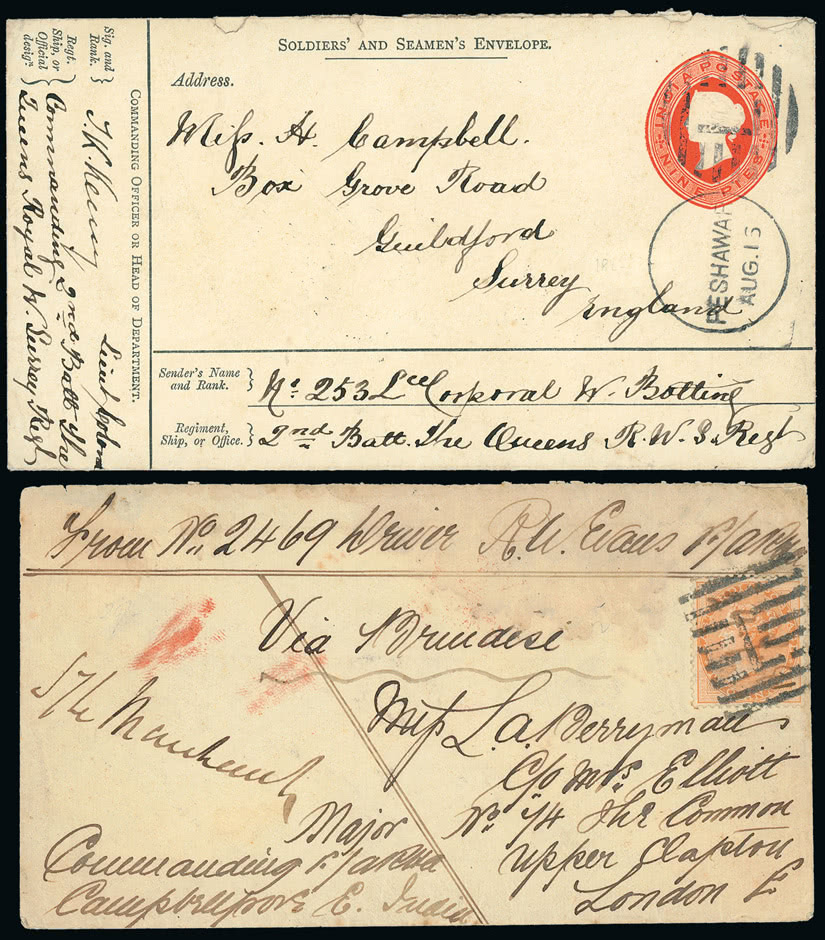 SOLDIERS' AND SEAMEN'S ENVELOPE.
Address.
Miss. H. Campbell.
Box Grove Road
Guildford
Surrey
England
INDIA POSTAGE
NINE PIES
PESHAWAR
AUG. 15
Sender's Name and Rank.
No. 253 Lce Corporal W. Botting
Regiment, Ship, or Office.
2nd Batt. The Queens R. W. S. Regt
COMMANDING OFFICER OR HEAD OF DEPARTMENT.
Sig. and Rank.
Lieut Colonel
Regt. Ship, or Official design.
Commanding 2nd Batt The
Queens Royal W. Surrey Regt
From No. 2469 Driver A. W. Evans
Via Brindesi
Miss L. A. Berryman
C/o Mrs Elliott
No. 14 The Common
Upper Clapton
London E
Major
Commanding
Campbellpore E. India